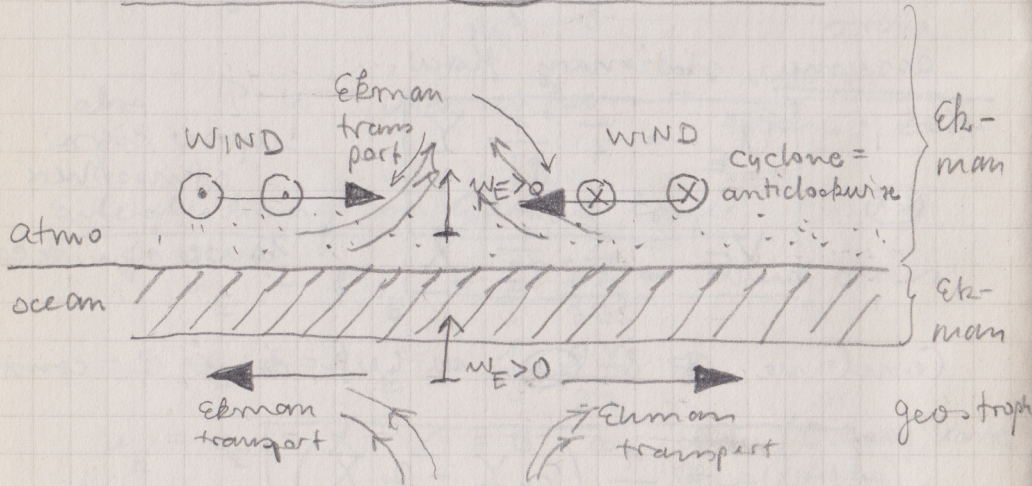 Ekman
trans
port
WIND
WIND
cyclone =
anticlockwise
Ek-
man
w_E>0
atmo
ocean
Ek-
man
w_E>0
Ekman
transport
Ekman
transport
geostroph